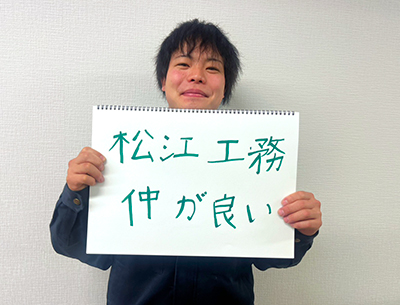 松江工務
仲が良い